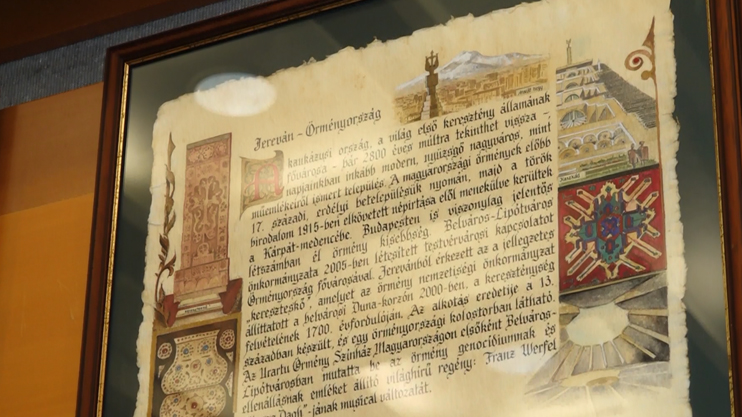 Jereván – Örményország
A kaukázusi ország, a világ első keresztény államának
fővárosa – bár 2800 éves múltra tekinthet vissza –,
napjainkban inkább modern, nyüzsgő nagyváros, mint
műemlékeiről ismert település. A magyarországi örmények előbb
17. századi, erdélyi betelepülésük nyomán, majd a török
birodalom 1915-ben elkövetett népirtása elől menekülve kerültek
a Kárpát-medencébe. Budapesten is viszonylag jelentős
létszámban él örmény kisebbség. Belváros-Lipótváros
önkormányzata 2005-ben létesített testvérvárosi kapcsolatot
Örményország fővárosával. Jerevánból érkezett az a jellegzetes
"kereszteskő", amelyet az örmény nemzetiségi önkormányzat
állíttatott a belvárosi Duna-korzón 2000-ben, a kereszténység
felvételének 1700. évfordulóján. Az alkotás eredetije a 13.
században készült, és egy örményországi kolostorban látható.
Az Urartu Örmény Színház Magyarországon elsőként Belváros-
Lipótvárosban mutatta be az örmény genocídiumnak és
ellenállásnak emléket állító világhírű regény: Franz Werfel
Dagh"-jának musical változatát.